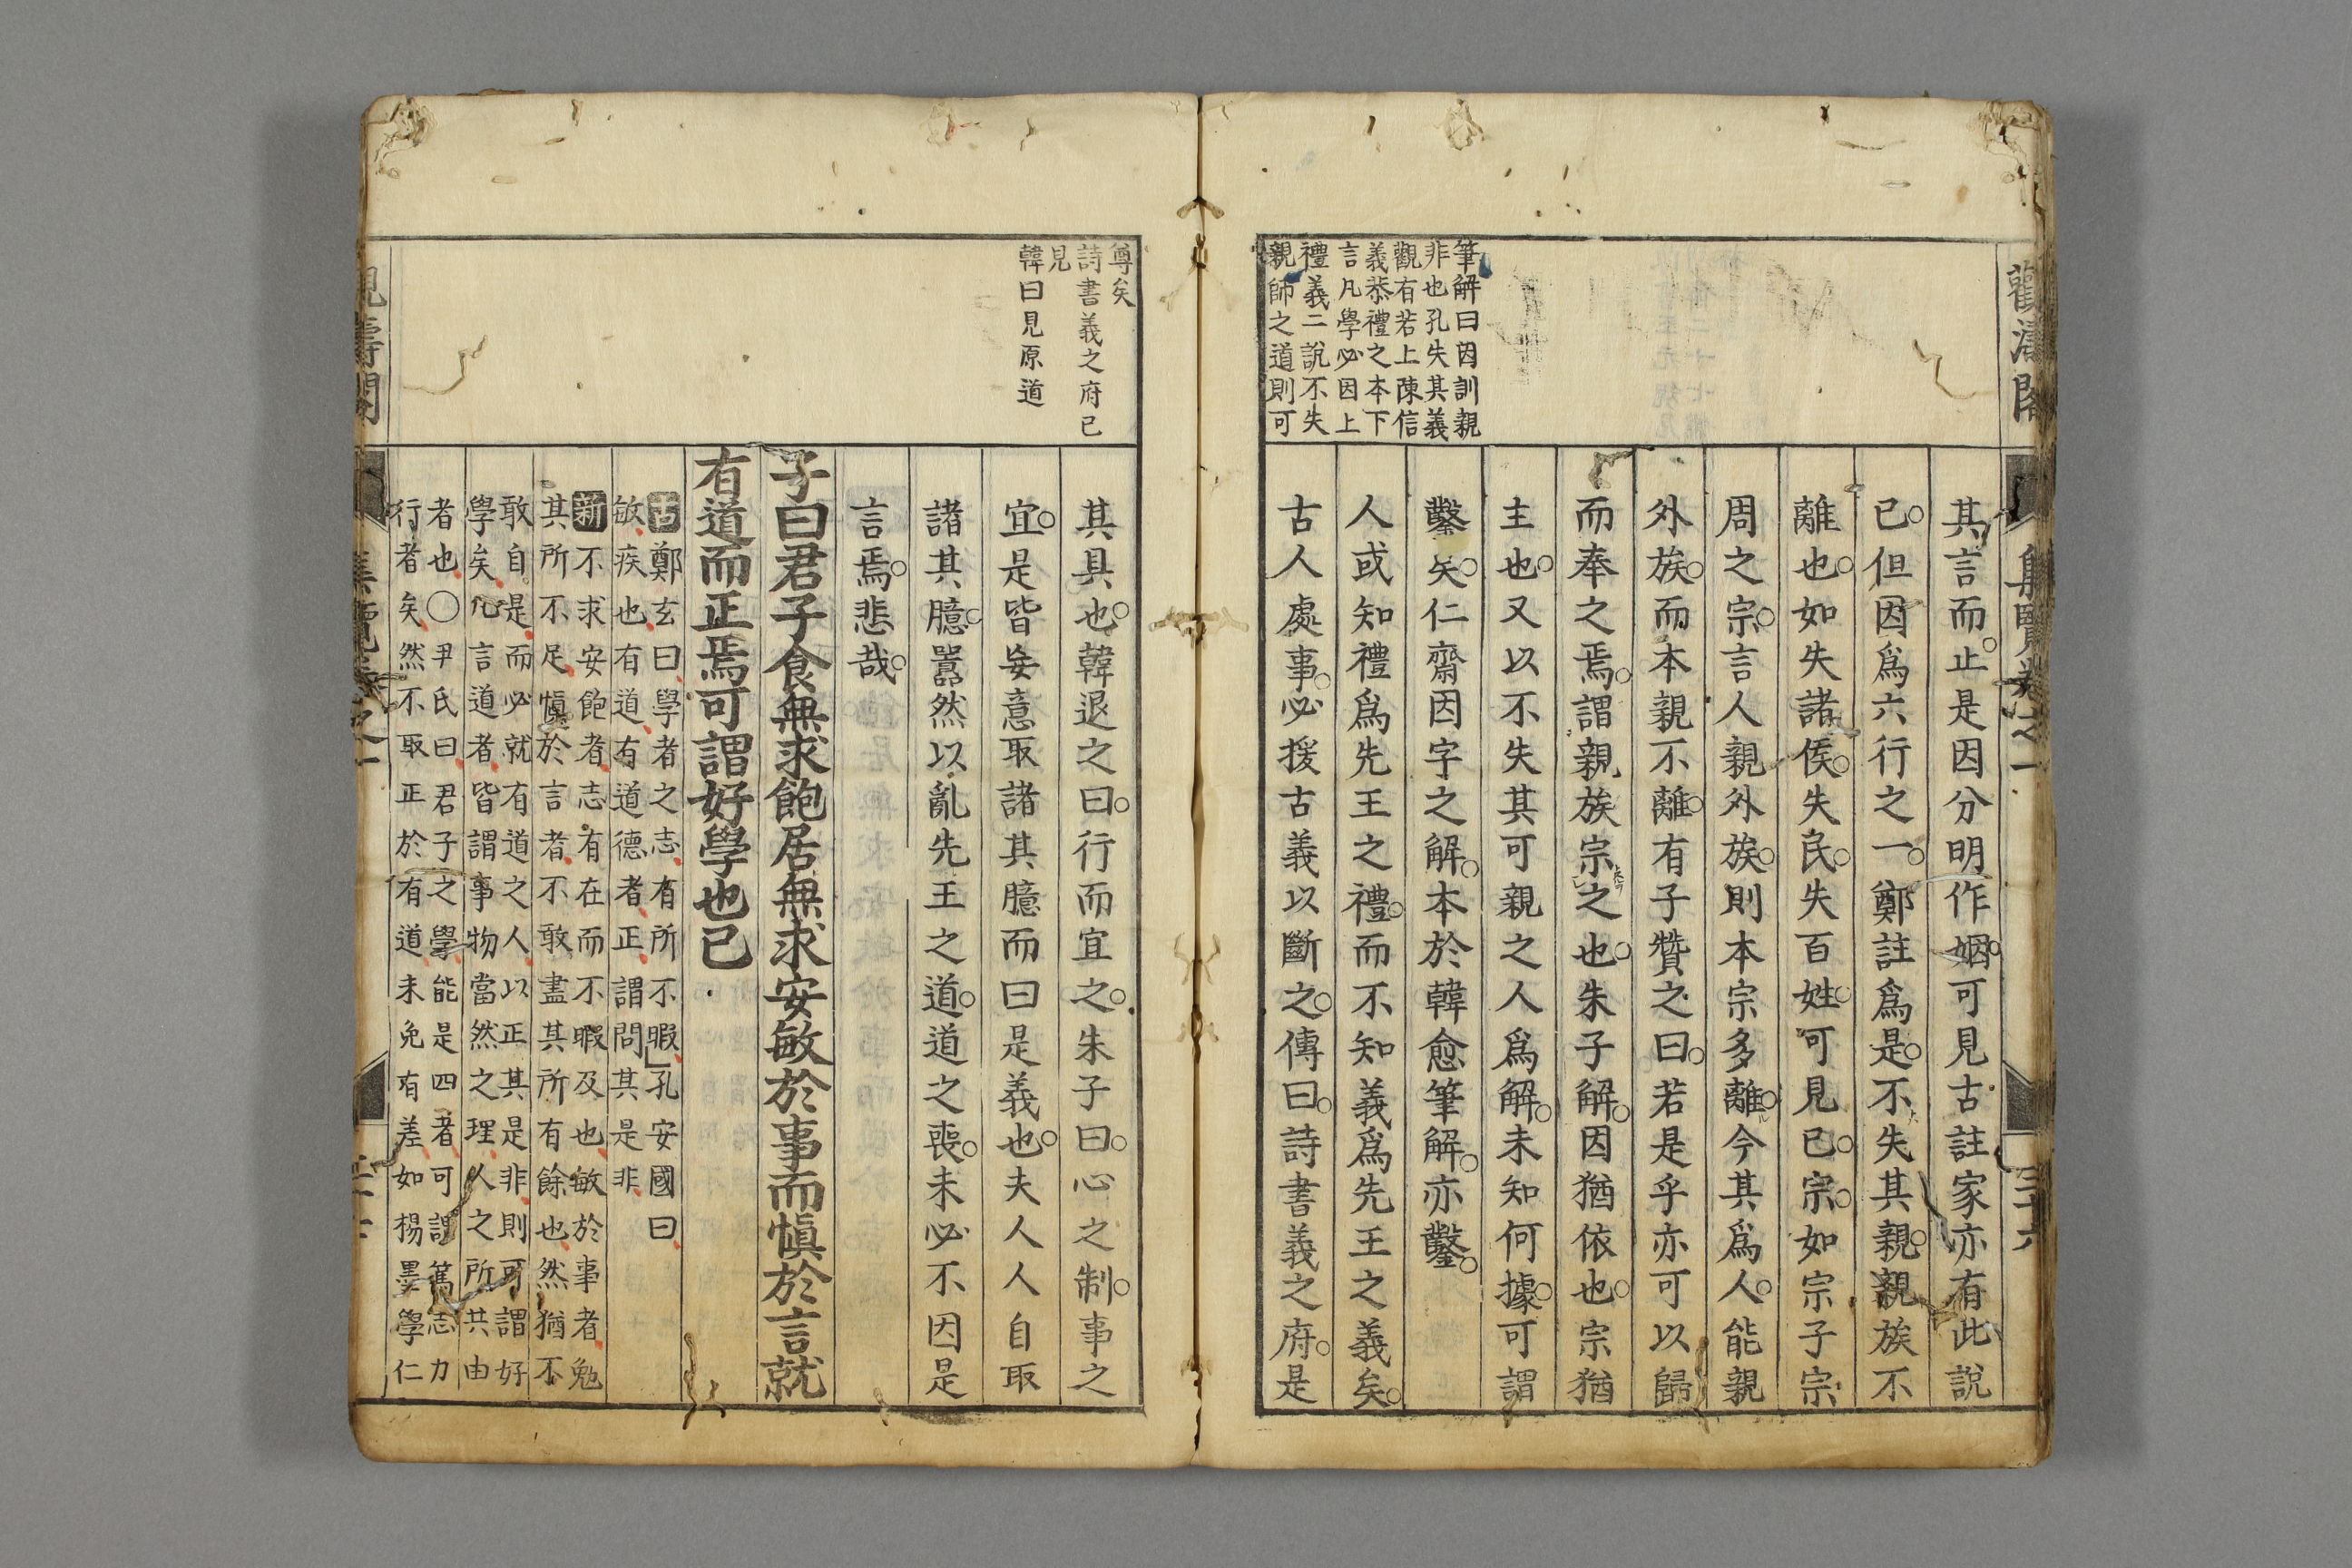 筆解曰因訓親
非也孔失其義
觀有若上陳信
義恭禮之本下
言凡學必因上
禮義二說不失
親師之道則可
其言而止是因分明作姻可見古註家亦有此說
已但因爲六行之一鄭註爲是不失其親親族不
離也如失諸侯失民失百姓可見已宗如宗子宗
周之宗言人親外族則本宗多離今其爲人能親
外族而本親不離有子贊之曰若是乎亦可以歸
而奉之焉謂親族宗之也朱子解因猶依也宗猶
主也又以不失其可親之人爲解未知何據可謂
鑿矣仁齋因字之解本於韓愈筆解亦鑿
人或知禮爲先王之禮而不知義爲先王之義矣
古人處事必援古義以斷之傳曰詩書義之府是
尊矣
詩書義之府已
見
韓曰見原道
其具也韓退之曰行而宜之朱子曰心之制事之
宜是皆妄意取諸其臆而曰是義也夫人人自取
諸其臆囂然以亂先王之道道之喪未必不因是
言焉悲哉
子曰君子食無求飽居無求安敏於事而愼於言就
有道而正焉可謂好學也已
古鄭玄曰學者之志有所不暇孔安國曰
敏疾也有道有道德者正謂問其是非
新不求安飽者志有在而不暇及也敏於事者勉
其所不足愼於言者不敢盡其所有餘也然猶不
敢自是而必就有道之人以正其是非則可謂好
學矣凡言道者皆謂事物當然之理人之所共由
者也○尹氏曰君子之學能是四者可謂篤志力
行者矣然不取正於有道未免有差如楊墨學仁
觀濤閣
集覽卷之一
二十六